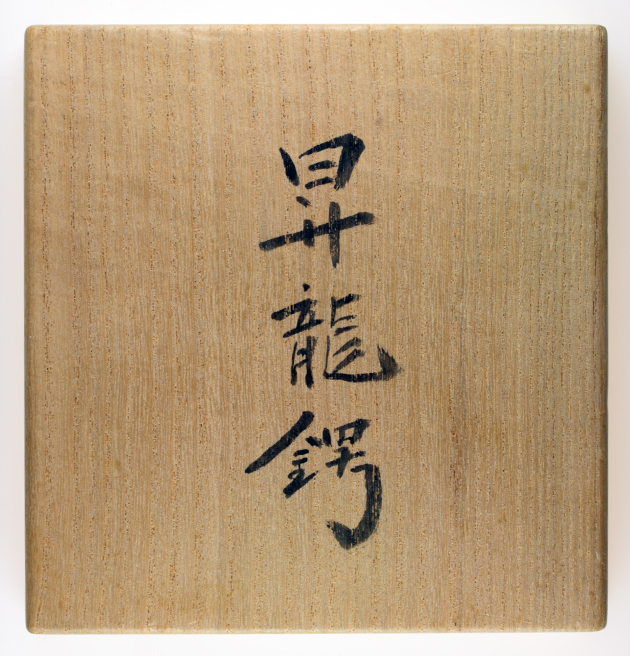 昇龍鍔